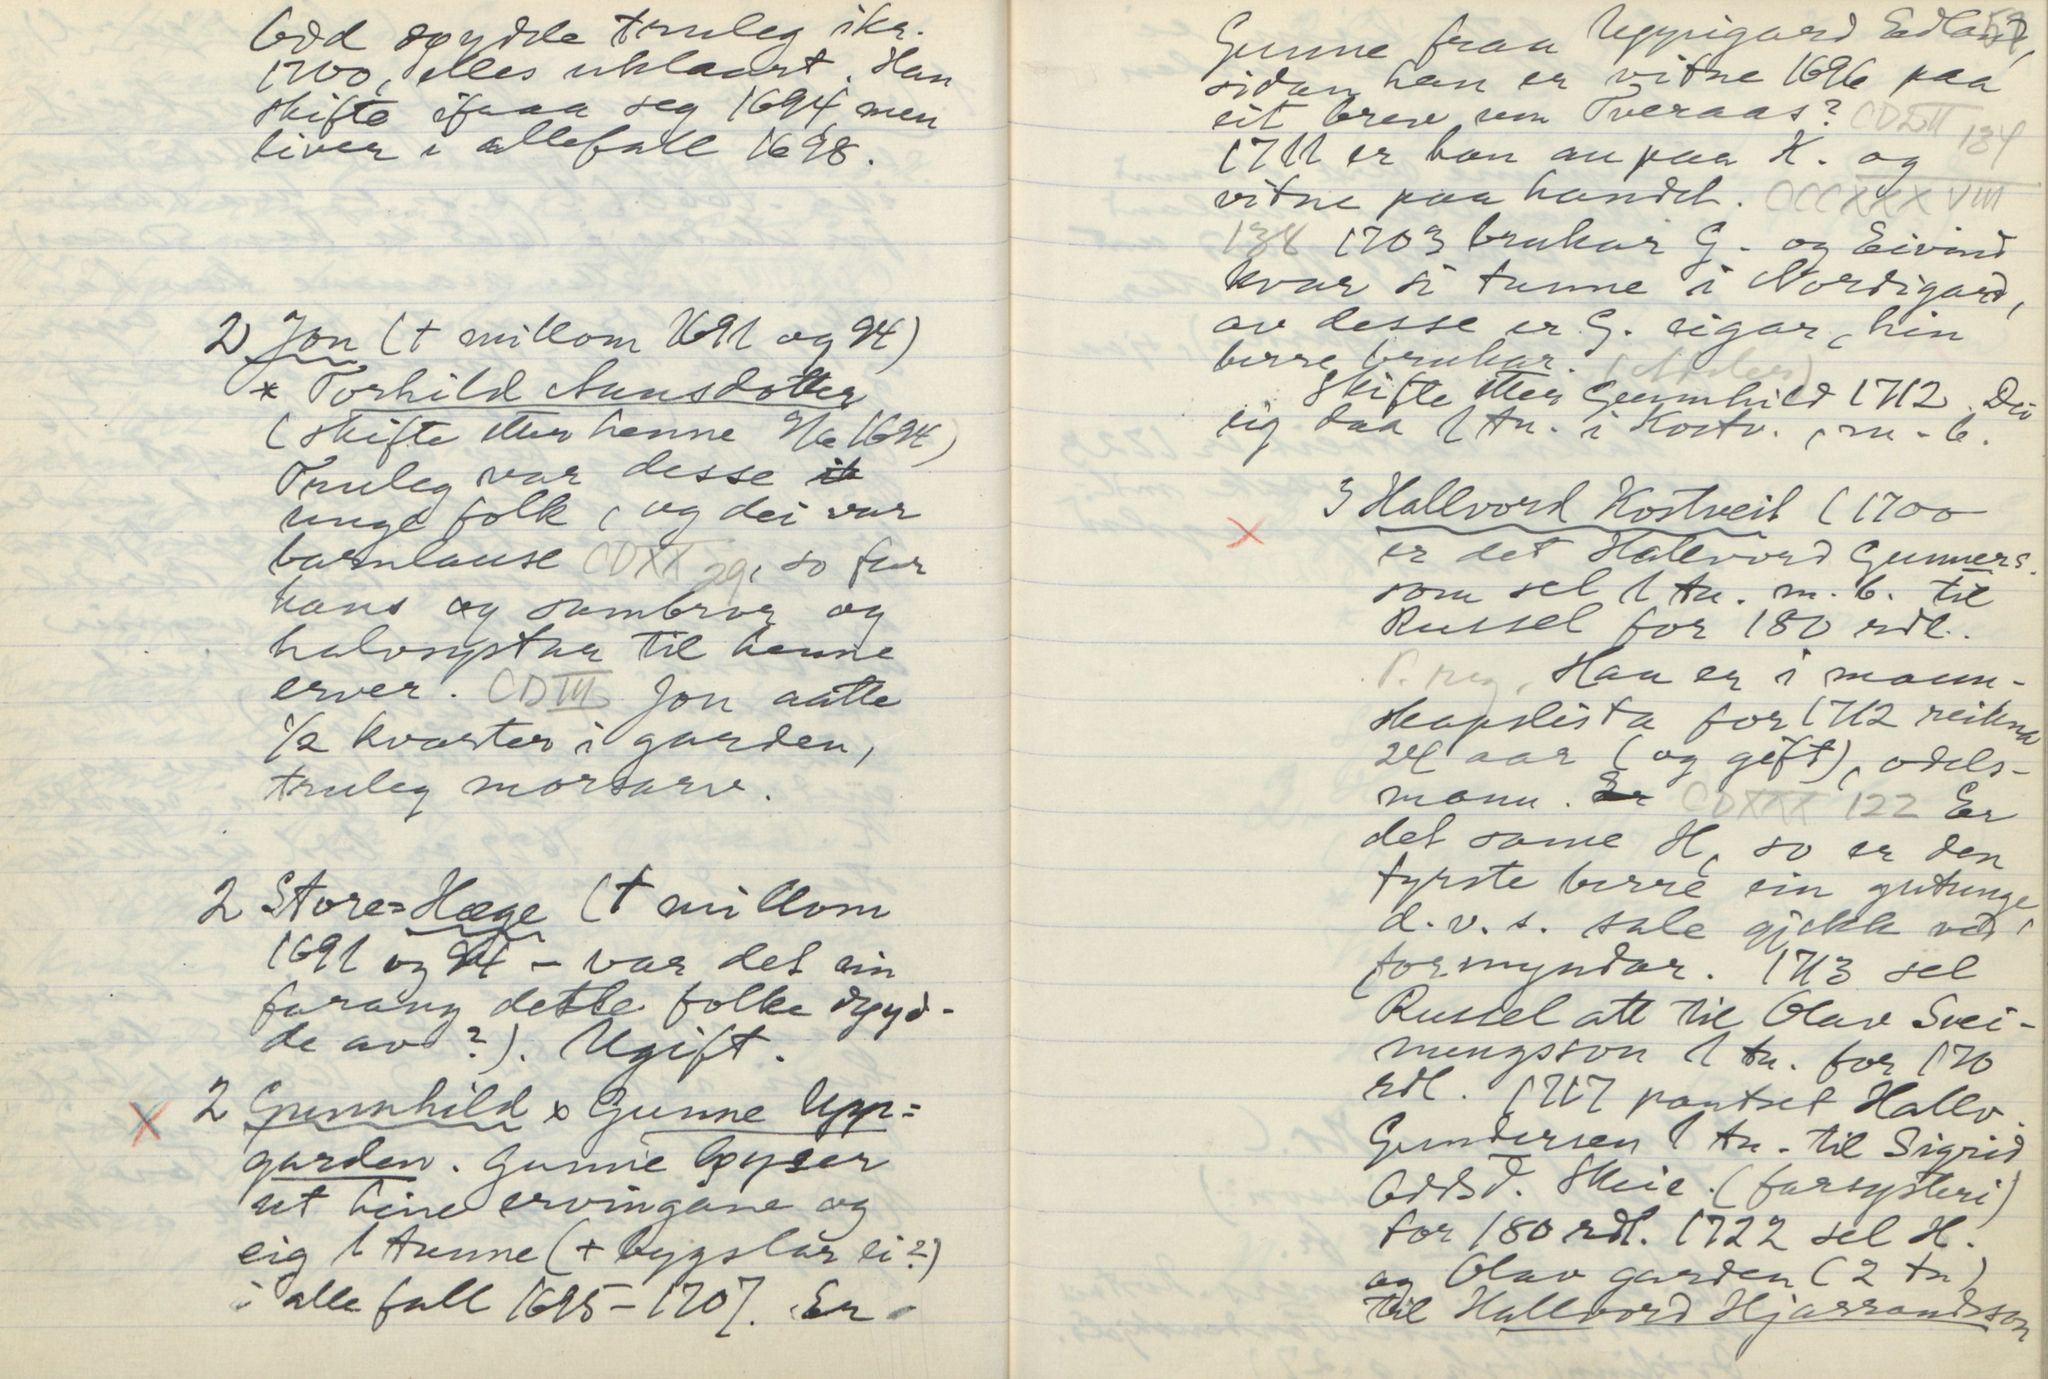 Odd døydde truleg ikr.
1700, elles uklaart. Han
skifte ifraa seg 1694, men
liver i allefall 1698.
2) Jon († millom 1691 og 94)
* Torhild Aunsdotter
(skifte etter henne 9/6 1694)
Truleg var desse
unge folk, og dei var
barnlause CDXX 29, so far
hans og sambror og
halvsyster til henne
erver. CDIII Jon aatte
1/2 kvarter i garden,
truleg morsarv.
2 Store=Hæge († millom
1691 og 94 – var det ein
farang dette folke døyd-
de av?). Ugift.
x 2 Gunnhild x Gunne Upp=
garden. Gunne løyser
ut hine ervingane og
eig 1 tunne (+ bygslar ei?)
i alle fall 1695–1707. Er
Gunne fraa Uppigard Edland, 52
sidan han er vitne 1696 paa
eit brev um Tveraas? CDXII 134
1711 er han au paa K. og
vitne paa handel. CCCXXXVIII
138 1703 brukar G. og Eivind
kvar si tunne i Nordigard,
av desse er G. eigar, hin
berre brukar.
Skifte etter Gunnhild 1712. Dei
eig daa 1 tn. i Kostv., m.b.
x 3 Hallvord Kostveit (1700
er det Hallvord Gunners.
som sel 1 tn. m.b. til
Russel for 180 rdl.
P. reg. Han er i mann-
skapslista for 1712 reikna
24 aar (og gift), odels-
mann. CDXXX 122 Er
det same H, so er den
fyrste berre ein gutunge,
d.v.s. sale gjekk ved
formyndar. 1713 sel
Russel att til Olav Svei-
nungsson 1 tn. for 170
rdl. 1717 pantset Hallv.
Gundersen 1 tn. til Sigrid
Oddsd. Skeie (farsysteri)
for 180 rdl. 1722 sel H.
og Olav garden (2 tn)
til Hallvord Hjarrandsson